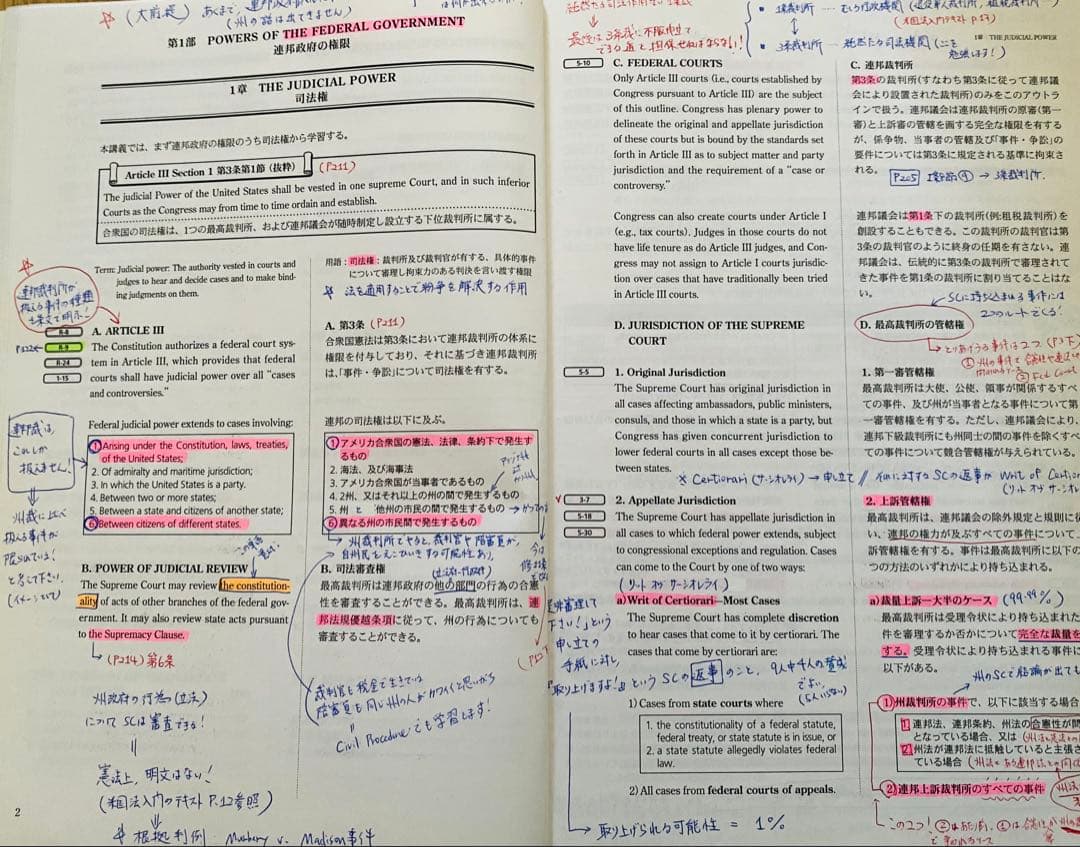 (大前提)
第1部 POWERS OF THE FEDERAL GOVERNMENT
連邦政府の権限
1章 THE JUDICIAL POWER
司法権
本講義では、まず連邦政府の権限のうち司法権から学習する。
Article III Section 1 第3条第1節 (抜粋)
(P211)
The judicial Power of the United States shall be vested in one supreme Court, and in such inferior
Courts as the Congress may from time to time ordain and establish.
合衆国の司法権は、1つの最高裁判所、および連邦議会が随時制定し設立する下位裁判所に属する。
Term: Judicial power: The authority vested in courts and
judges to hear and decide cases and to make bind-
ing judgments on them.
用語:司法権:裁判所及び裁判官が有する、具体的事件
について審理し拘束力のある判決を言い渡す権限
法を適用することで紛争を解決する作用
連邦裁判所が
扱える事件の種類
R-8
R-9
R-24
1-15
A. ARTICLE III
The Constitution authorizes a federal court sys-
tem in Article III, which provides that federal
courts shall have judicial power over all “cases
and controversies.”
A. 第3条 (P211)
合衆国憲法は第3条において連邦裁判所の体系に
権限を付与しており、それに基づき連邦裁判所
は、「事件・争訟」について司法権を有する。
Federal judicial power extends to cases involving:
1. Arising under the Constitution, laws, treaties,
of the United States;
2. Of admiralty and maritime jurisdiction;
3. In which the United States is a party.
4. Between two or more states;
5. Between a state and citizens of another state;
6. Between citizens of different states.
連邦の司法権は以下に及ぶ。
① アメリカ合衆国の憲法、法律、条約下で発生す
るもの
2. 海法、及び海事法
3. アメリカ合衆国が当事者であるもの
4. 2州、又はそれ以上の州の間で発生するもの
5. 州 と 他州の市民の間で発生するもの
⑥ 異なる州の市民間で発生するもの
連邦裁は、
これしか
扱えません!
州裁に比べ
扱える事件が
限られている!
と考えて下さい。
(イメージで)
州裁判所でやると、裁判官や陪審員が、
自州民をえこひいきする可能性あり
B. POWER OF JUDICIAL REVIEW
The Supreme Court may review the constitution-
ality of acts of other branches of the federal gov-
ernment. It may also review state acts pursuant
to the Supremacy Clause.
(P214) 第6条
B. 司法審査権
最高裁判所は連邦政府の他の部門の行為の合憲
性を審査することができる。最高裁判所は、連
邦法規優越条項に従って、州の行為についても
審査することができる。
州政府の行為(立法)
についてSCは審査できる!
憲法上、明文はない!
(米国法入門のテキスト P.12参照)
根拠判例:
v. Madison事件
裁判官も税金で生きている
陪審員も同じ州の人がカワイイと思いがち
Civil Procedureでも学習します!
2
1章 THE JUDICIAL POWER
5-10
C. FEDERAL COURTS
Only Article III courts (i.e., courts established by
Congress pursuant to Article III) are the subject
of this outline. Congress has plenary power to
delineate the original and appellate jurisdiction
of these courts but is bound by the standards set
forth in Article III as to subject matter and party
jurisdiction and the requirement of a “case or
controversy.”
Congress can also create courts under Article I
(e.g., tax courts). Judges in those courts do not
have life tenure as do Article III judges, and Con-
gress may not assign to Article I courts jurisdic-
tion over cases that have traditionally been tried
in Article III courts.
C. 連邦裁判所
第3条の裁判所(すなわち第3条に従って連邦議
会により設置された裁判所)のみをこのアウトラ
インで扱う。連邦議会は連邦裁判所の原審(第一
審)と上訴審の管轄を画する完全な権限を有する
が、係争物、当事者の管轄及び「事件・争訟」の
要件については第3条に規定される基準に拘束さ
れる。
P205
連邦議会は第1条下の裁判所(例:租税裁判所)を
創設することもできる。この裁判所の裁判官は第
3条の裁判官のように終身の任期を有さない。連
邦議会は、伝統的に第3条の裁判所で審理されて
きた事件を第1条の裁判所に割り当てることはな
い。
SCに持ち込まれる事件には
2つのルートでくる!
D. JURISDICTION OF THE SUPREME
COURT
D. 最高裁判所の管轄権
5-5
1. Original Jurisdiction
The Supreme Court has original jurisdiction in
all cases affecting ambassadors, public ministers,
consuls, and those in which a state is a party, but
Congress has given concurrent jurisdiction to
lower federal courts in all cases except those be-
tween states.
1. 第一審管轄権
最高裁判所は大使、公使、領事が関係するすべ
ての事件、及び州が当事者となる事件について第
一審管轄権を有する。ただし、連邦議会により、
連邦下級裁判所にも州同士の間の事件を除くすべ
ての事件について競合管轄権が与えられている。
※ Certiorari (サーシオレライ) → 申し立て
3-7
5-18
5-30
2. Appellate Jurisdiction
The Supreme Court has appellate jurisdiction in
all cases to which federal power extends, subject
to congressional exceptions and regulation. Cases
can come to the Court by one of two ways:
(リット オブ サーシオレライ)
a) Writ of Certiorari—Most Cases
The Supreme Court has complete discretion
to hear cases that come to it by certiorari. The
cases that come by certiorari are:
2. 上訴管轄権
最高裁判所は、連邦議会の除外規定と規則に従
い、連邦の権力が及ぶすべての事件について上
訴管轄権を有する。事件は最高裁判所に以下の
つの方法のいずれかにより持ち込まれる。
a) 裁量上訴—大半のケース (99.99%)
最高裁判所は受理令状により持ち込まれる事
件を審理するか否かについて完全な裁量を
する。受理令状により持ち込まれる事件に
以下がある。
申し立ての
手紙に対し、
取り上げますよ!」というSCの返事のこと、9人中4人の賛成
でよい。
1) Cases from state courts where
1. the constitutionality of a federal statute,
federal treaty, or state statute is in issue, or
2. a state statute allegedly violates federal
law.
2) All cases from federal courts of appeals.
1) 州裁判所の事件で、以下に該当する場合
1. 連邦法、連邦条約、州法の合憲性が問
となっている場合、又は
2. 州法が連邦法に抵触していると主張さ
ている場合
2) 連邦上訴裁判所のすべての事件
取り上げられる可能性 = 1%